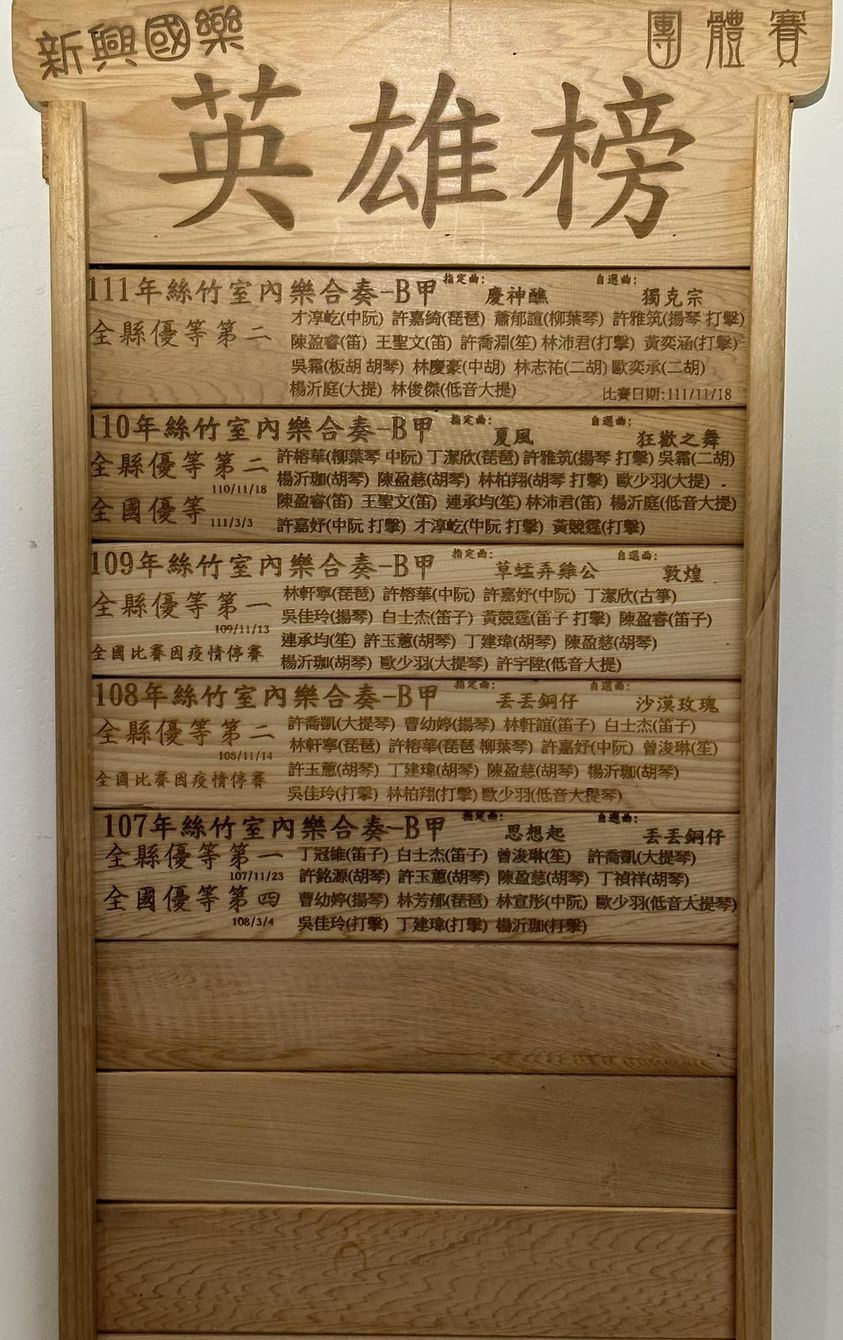 新興國樂 團體賽
英雄榜
111年絲竹室內樂合奏-B甲 指定曲: 慶神醮 自選曲: 獨克宗
全縣優等第二
才淳屹(中阮) 許嘉綺(琵琶) 蕭郁諠(柳葉琴) 許雅筑(揚琴 打擊)
陳盈睿(笛) 王聖文(笛) 許喬淵(笙) 林沛君(打擊) 黃奕涵(打擊)
吳霜(板胡 胡琴) 林慶豪(中胡) 林志祐(二胡) 歐奕承(二胡)
楊沂庭(大提) 林俊傑(低音大提) 比賽日期:111/11/18
110年絲竹室內樂合奏-B甲 指定曲: 夏風 自選曲: 狂歡之舞
全縣優等第二
110/11/18
全國優等
111/3/3
許榕華(柳葉琴 中阮) 丁潔欣(琵琶) 許雅筑(揚琴 打擊) 吳霜(二胡)
楊沂珈(胡琴) 陳盈慈(胡琴) 林柏翔(胡琴 打擊) 歐少羽(大提)
陳盈睿(笛) 王聖文(笛) 連承均(笙) 林沛君(笛) 楊沂庭(低音大提)
許嘉妤(中阮 打擊) 才淳屹(中阮 打擊) 黃競霆(打擊)
109年絲竹室內樂合奏-B甲 指定曲: 草蜢弄雞公 自選曲: 敦煌
全縣優等第一
109/11/13
全國比賽因疫情停賽
林軒寧(琵琶) 許榕華(中阮) 許嘉妤(中阮) 丁潔欣(古箏)
吳佳玲(揚琴) 白士杰(笛子) 黃競霆(笛子 打擊) 陳盈睿(笛子)
連承均(笙) 許玉蕙(胡琴) 丁建瑋(胡琴) 陳盈慈(胡琴)
楊沂珈(胡琴) 歐少羽(大提琴) 許宇陞(低音大提)
108年絲竹室內樂合奏-B甲 指定曲: 丟丟銅仔 自選曲: 沙漠玫瑰
全縣優等第二
108/11/14
全國比賽因疫情停賽
許喬凱(大提琴) 曹幼婷(揚琴) 林軒誼(笛子) 白士杰(笛子)
林軒寧(琵琶) 許榕華(琵琶 柳葉琴) 許嘉妤(中阮) 曾浚琳(笙)
許玉蕙(胡琴) 丁建瑋(胡琴) 陳盈慈(胡琴) 楊沂珈(胡琴)
吳佳玲(打擊) 林柏翔(打擊) 歐少羽(低音大提琴)
107年絲竹室內樂合奏-B甲 指定曲: 思想起 自選曲: 丟丟銅仔
全縣優等第一
107/11/23
全國優等第四
108/3/4
丁冠維(笛子) 白士杰(笛子) 曾浚琳(笙) 許喬凱(大提琴)
許銘源(胡琴) 許玉蕙(胡琴) 陳盈慈(胡琴) 丁禎祥(胡琴)
曹幼婷(揚琴) 林芳郁(琵琶) 林宣彤(中阮) 歐少羽(低音大提琴)
吳佳玲(打擊) 丁建瑋(打擊) 楊沂珈(打擊)